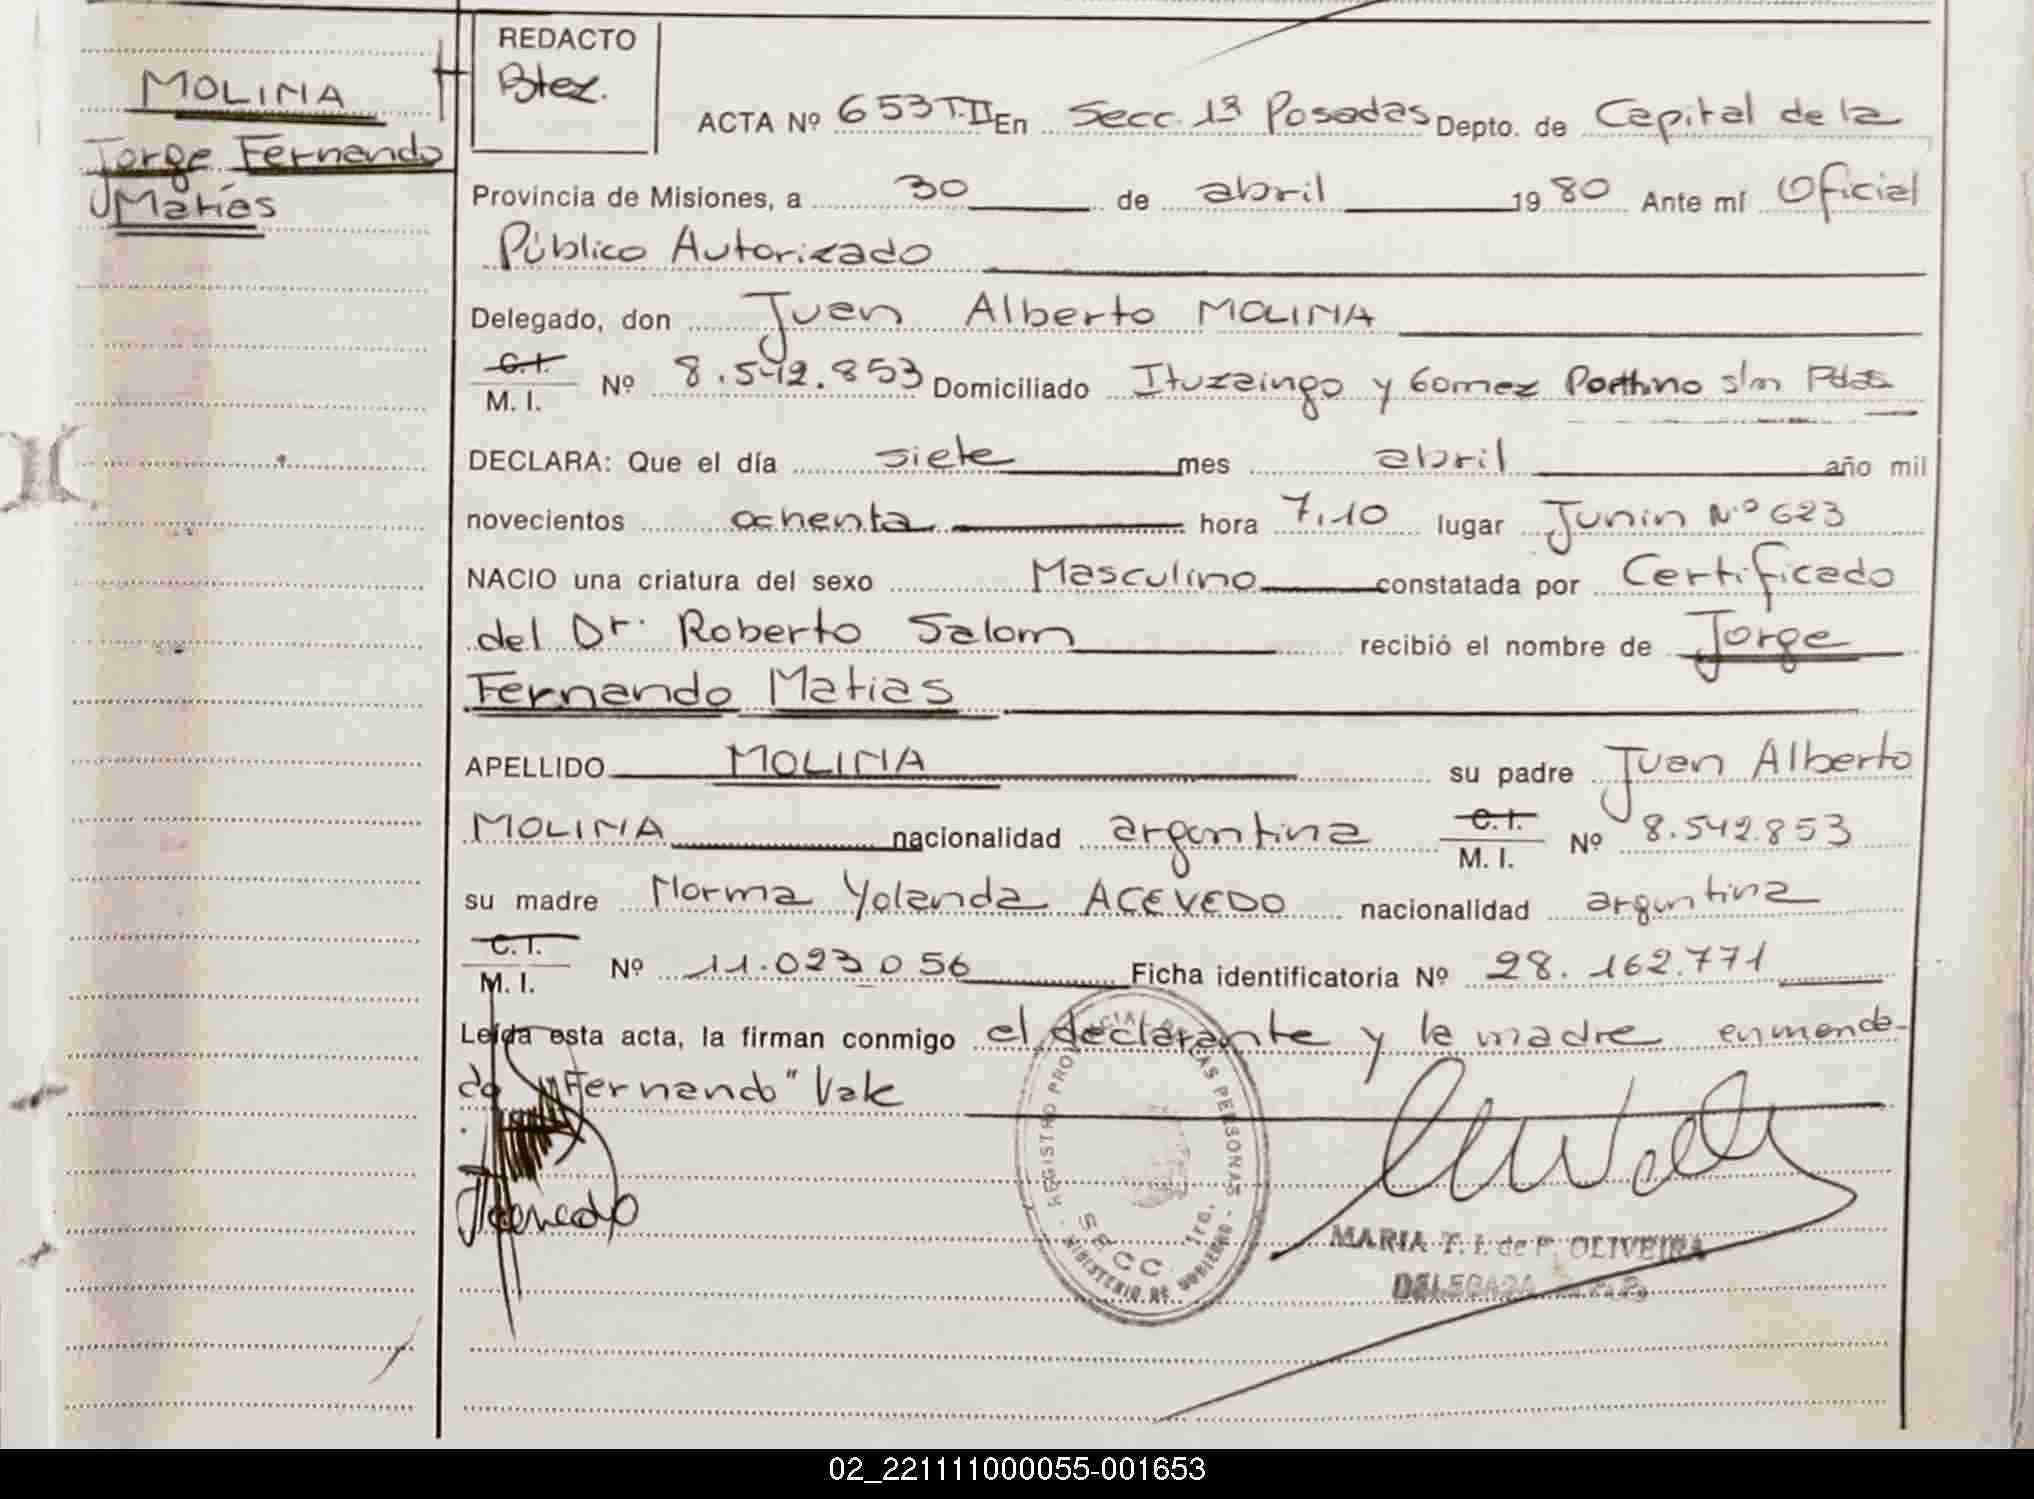 MOLINA
Jorge Fernando
Matías
REDACTO
Btez.
ACTA Nº 653 T.II En Secc. 1ª Posadas Depto. de Capital de la
Provincia de Misiones, a 30 de abril 1980 Ante mí Oficial
Público Autorizado
Delegado, don Juan Alberto MOLINA
C.I. M. I. Nº 8.542.853 Domiciliado Ituzaingo y Gomez s/n Pdas
DECLARA: Que el día siete mes abril año mil
novecientos ochenta hora 7,10 lugar Junin Nº 623
NACIO una criatura del sexo Masculino constatada por Certificado
del Dr. Roberto Salom recibió el nombre de Jorge
Fernando Matias
APELLIDO MOLINA su padre Juan Alberto
MOLINA nacionalidad argentina C.I. M. I. Nº 8.542.853
su madre Norma Yolanda ACEVEDO nacionalidad argentina
C.I. M. I. Nº 11.023.056 Ficha identificatoria Nº 28.162.771
Leída esta acta, la firman conmigo el declarante y la madre enmenda-
do "Fernando" Vale
REGISTRO PROVINCIAL DE LAS PERSONAS
SECC. 1ra.
MINISTERIO DE GOBIERNO
MARIA T. I. de P. OLIVEIRA
DELEGADA
02_221111000055-001653